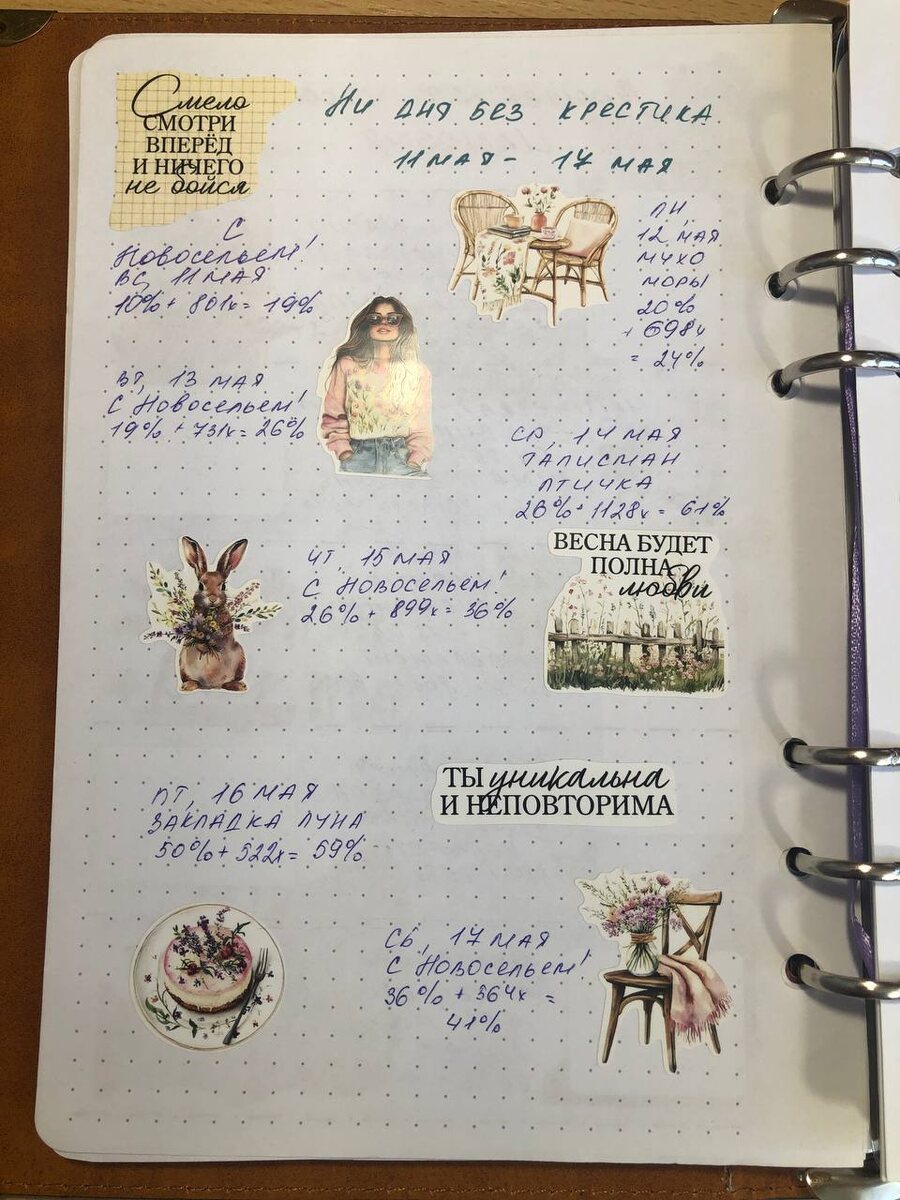 Смело
СМОТРИ
ВПЕРЁД
И НИЧЕГО
не бойся
НИ ДНЯ БЕЗ КРЕСТИКА
11 МАЯ - 17 МАЯ
С
Новосельем!
ВС, 11 МАЯ
10% + 801х = 19%
ПН,
12 МАЯ
МУХО
МОРЫ
20%
+ 698х
= 24%
ВТ, 13 МАЯ
С Новосельем!
19% + 731х = 26%
СР, 14 МАЯ
ТАЛИСМАН
ПТИЧКА
26% + 1128х = 61%
ЧТ, 15 МАЯ
С Новосельем!
26% + 899х = 36%
ВЕСНА БУДЕТ
ПОЛНА
любви
ТЫ уникальна
И НЕПОВТОРИМА
ПТ, 16 МАЯ
ЗАКЛАДКА ЛУНА
50% + 522х = 59%
СБ, 17 МАЯ
С Новосельем!
36% + 364х =
41%